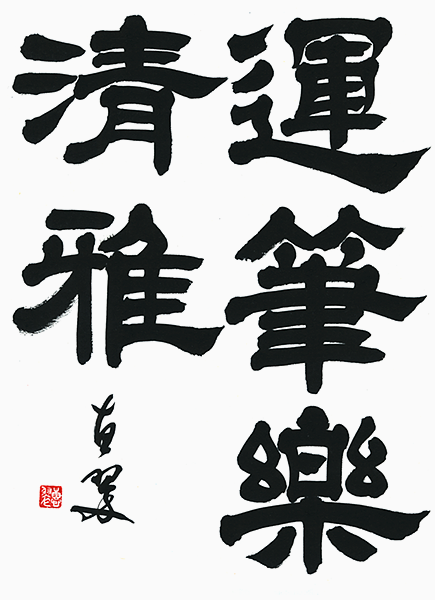 運筆樂
清雅